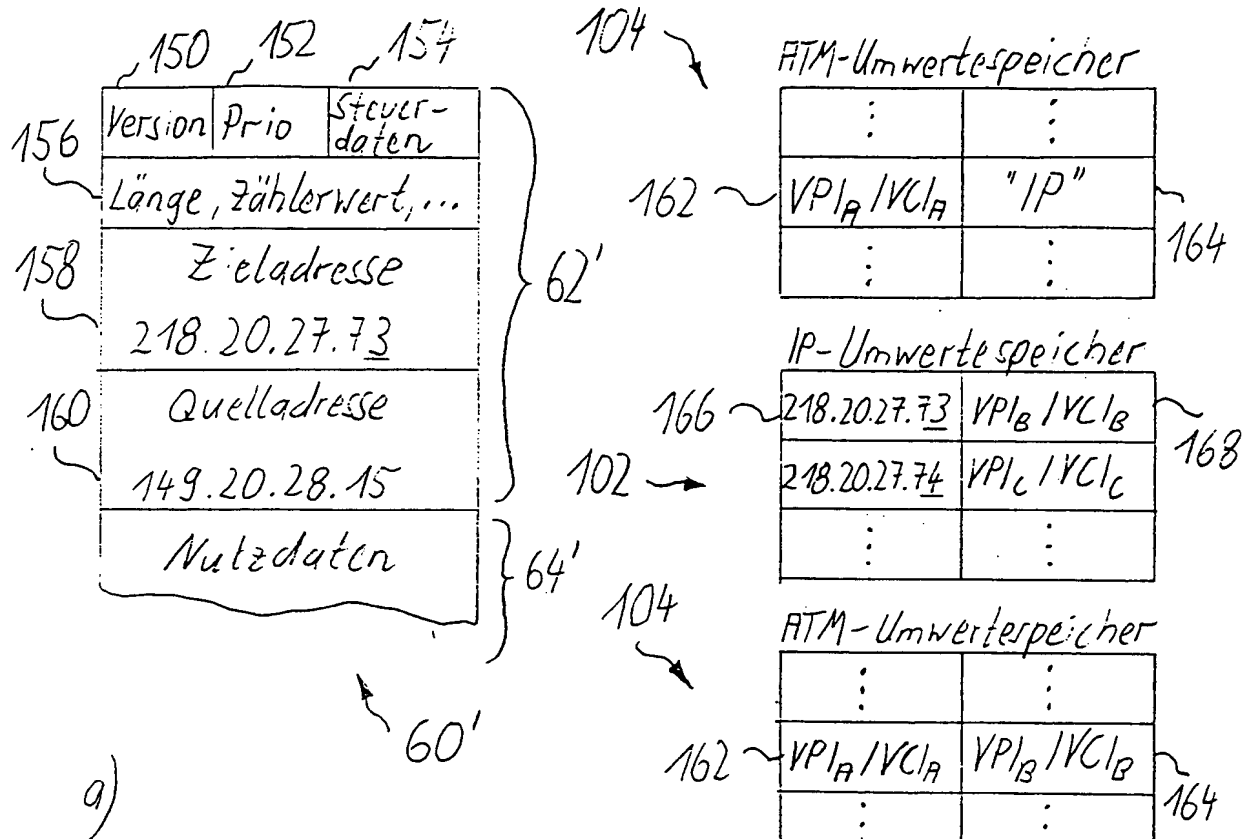 150 152 154
Version Prio Steuer-
daten
156
Länge, Zählerwert,...
158
Zieladresse
218.20.27.73
160
Quelladresse
149.20.28.15
Nutzdaten
62'
64'
60'
a)
104
ATM-Umwertespeicher
162 VPI_A/VCI_A "IP" 164
IP-Umwertespeicher
166 218.20.27.73 VPI_B/VCI_B 168
102 218.20.27.74 VPI_C/VCI_C
104
ATM-Umwertespeicher
162 VPI_A/VCI_A VPI_B/VCI_B 164